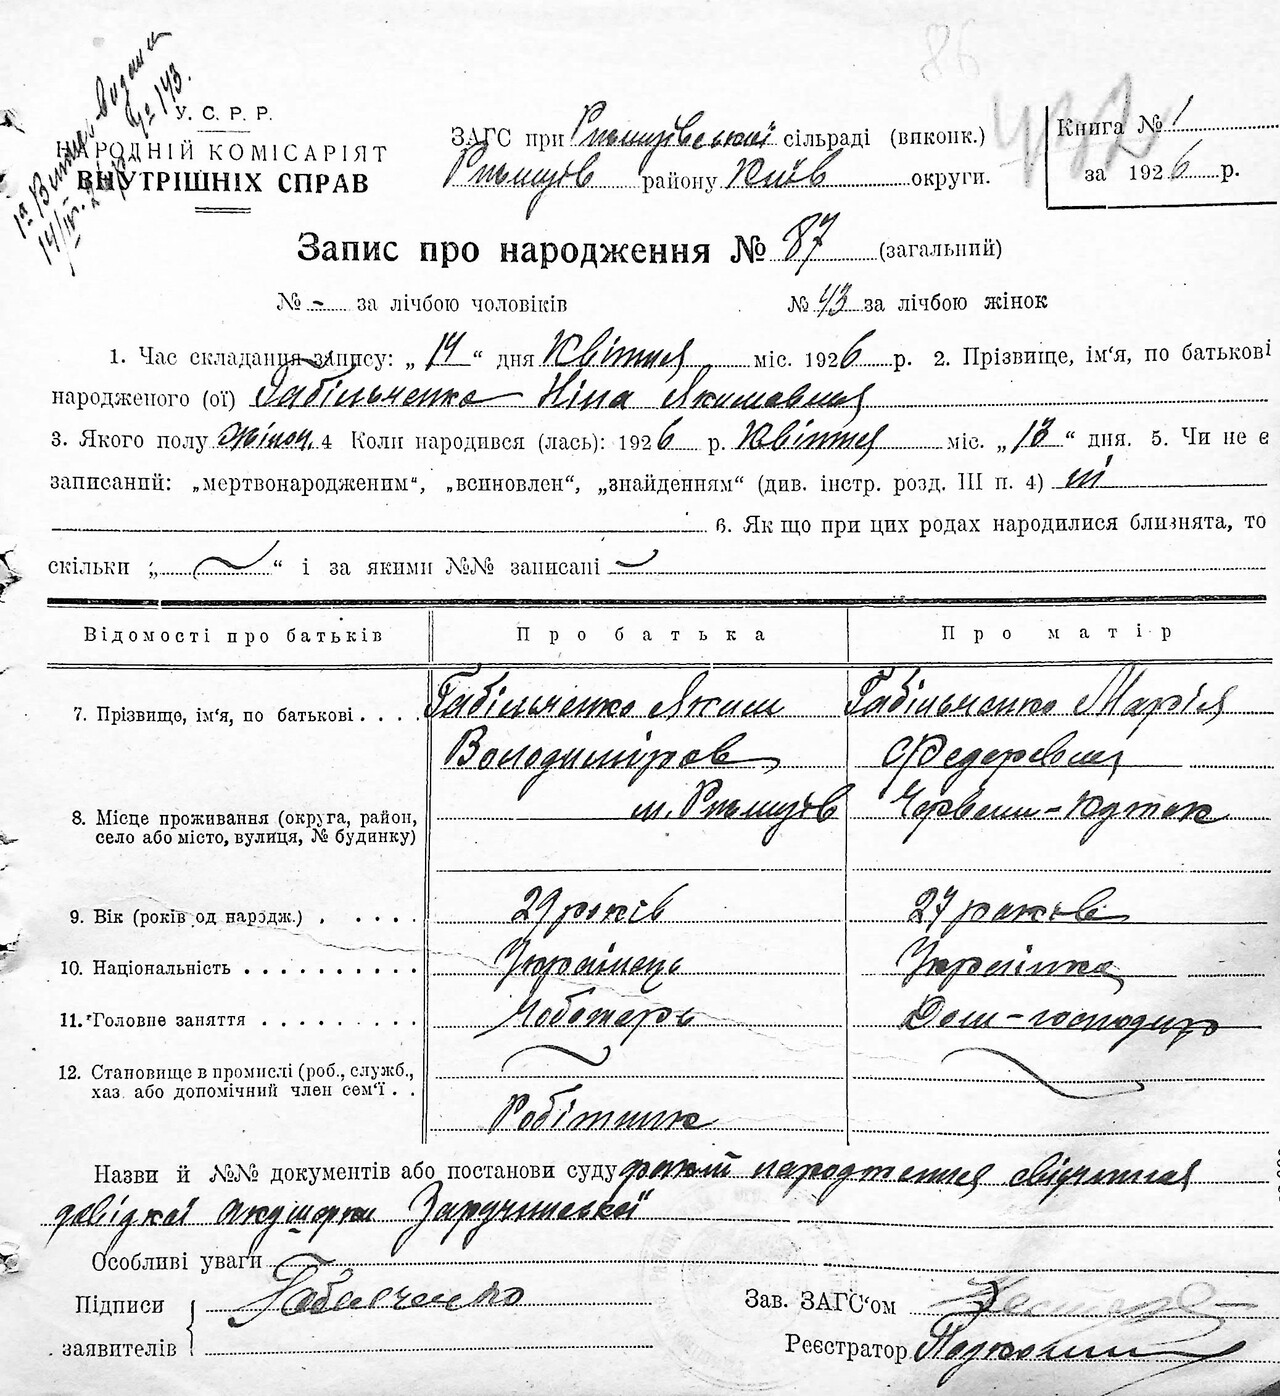 86
432
1а Витяг видани
14/IV. 26 р. № 143.
У. С. Р. Р.
НАРОДНІЙ КОМІСАРІЯТ
ВНУТРІШНІХ СПРАВ
ЗАГС при Ржищівській сільраді (виконк.)
Ржищів району Київ округи.
Книга № 1
за 1926 р.
Запис про народження № 87 (загальний)
№ - за лічбою чоловіків № 43 за лічбою жінок
1. Час складання запису: „ 14 “ дня Квітня міс. 1926 р. 2. Прізвище, ім‘я, по батькові
народженого (ої) Габільченко Ніна Якимовна
3. Якого полу жіноч. 4 Коли народився (лась): 1926 р. Квітня міс. „ 13 “ дня. 5. Чи не є
записаний: „мертвонародженим“, „всиновлен“, „знайденням“ (див. інстр. розд. III п. 4) ні
6. Як що при цих родах народилися близнята, то
скільки „ ~ “ і за якими №№ записані ~
Відомості про батьків Про батька Про матір
7. Прізвище, ім'я, по батькові . . . . Габільченко Яким Габільченко Марія
Володиміров Федоровна
8. Місце проживання (округа, район,
село або місто, вулиця, № будинку) м. Ржищів Червони-Куток
9. Вік (років од народж.) . . . . . 29 років 27 років
10. Національність . . . . . . . . . . Українець Українка
11. Головне заняття . . . . . . . . . Чоботарь Дом-господарь
12. Становище в промислі (роб., служб.,
хаз. або допомічний член сем‘ї . .
Робітник
Назви й №№ документів або постанови суду факт народження свідчиния
довідкої акушорки Заручинської
Особливі уваги
Підписи
заявителів
Габильченко
Зав. ЗАГС‘ом
Реєстратор